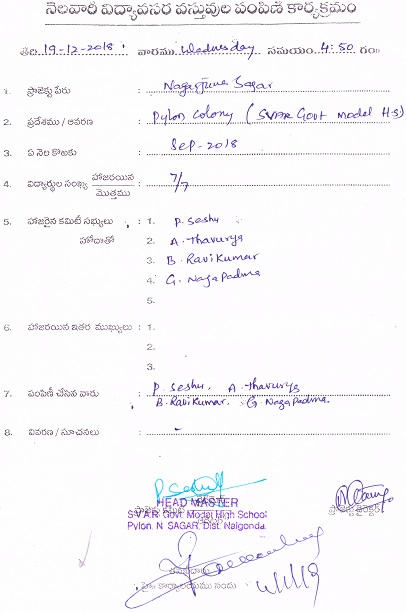 నెలవారీ విద్యావసర వస్తువుల పంపిణీ కార్యక్రమం
తేది 19-12-2018 వారము Wednesday సమయం 4:50 గం॥
1. ప్రాజెక్టు పేరు : Nagarjuna Sagar
2. ప్రదేశము / ఆవరణ : Pylon colony ( SVAR Govt model H-S)
3. ఏ నెల కొఱకు : Sep-2018
4. విద్యార్థుల సంఖ్య హాజరయిన / మొత్తము : 7/7
5. హాజరైన కమిటీ సభ్యులు : 1. P. Seshu
హోదాతో 2. A. Thavurya
3. B. Ravi Kumar
4. G. Naga Padma
5.
6. హాజరయిన ఇతర ముఖ్యులు : 1.
2.
3.
7. పంపిణీ చేసిన వారు : P. Seshu, A. Thavurya
B. Ravi Kumar. G. Naga Padma.
8. వివరణ / సూచనలు : -
HEAD MASTER
S.V.A.R. Govt. Model High School
Pylon. N. SAGAR. Dist. Nalgonda.
ప్రాజెక్టు డైరెక్టర్
4/1/19